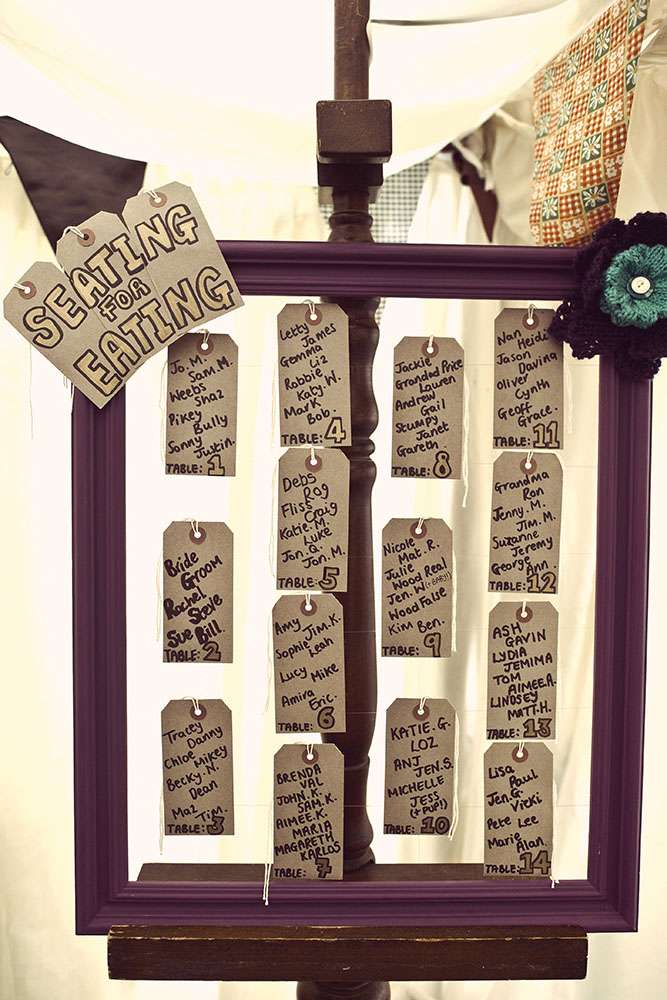 SEATING
FOR
EATING
Jo. M.
Sam. M.
Weebs
Shaz
Pikey
Bully
Sonny
Justin.
TABLE: 1
Bride
Groom
Rachel
Steve
Sue Bill.
TABLE: 2
Tracey
Danny
Chloe
Mikey
Becky. N.
Dean
Maz Tim.
TABLE: 3
Letty
James
Gemma
Liz
Robbie
Katy W.
Mark
Bob.
TABLE: 4
Debs
Rog
Fliss
Craig
Katie. M.
Luke
Jon. Q.
Jon. M.
TABLE: 5
Amy
Jim. K.
Sophie
Leah
Lucy Mike
Amira
Eric.
TABLE: 6
BRENDA
VAL
JOHN. K.
SAM. K.
AIMEE. K.
MARIA
MAGARETH
KARLOS
TABLE: 7
Jackie
Grandad Price
Lauren
Andrew
Gail
Stumpy
Janet
Gareth
TABLE: 8
Nicole
Mat. R.
Julie
Wood Real
Jen. W. (+BABY!)
Wood False
Kim Ben.
TABLE: 9
KATIE. G.
LOZ
ANJ
JEN. S.
MICHELLE
JESS
(+PUP!)
TABLE: 10
Nan
Heidi
Jason
Davina
Oliver
Cynth
Geoff
Grace.
TABLE: 11
Grandma
Ron
Jenny. M.
Jim. M.
Suzanne
Jeremy
George
Ann.
TABLE: 12
ASH
GAVIN
LYDIA
JEMIMA
TOM
AIMEE. A.
LINDSEY
MATT. H.
TABLE: 13
Lisa
Paul
Jen. G.
Vicki
Pete Lee
Marie
Alan.
TABLE: 14